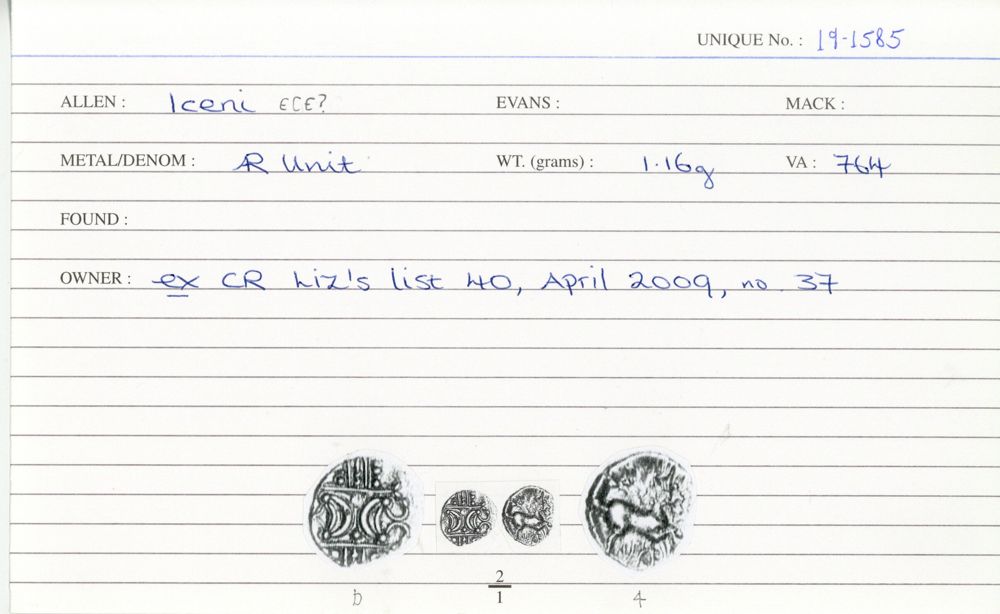 UNIQUE No. : 19-1585
ALLEN : Iceni ECE? EVANS : MACK :
METAL/DENOM : AR Unit WT. (grams) : 1.16g VA : 764
FOUND :
OWNER : ex CR Liz's list 40, April 2009, no. 37
2
b 1 4